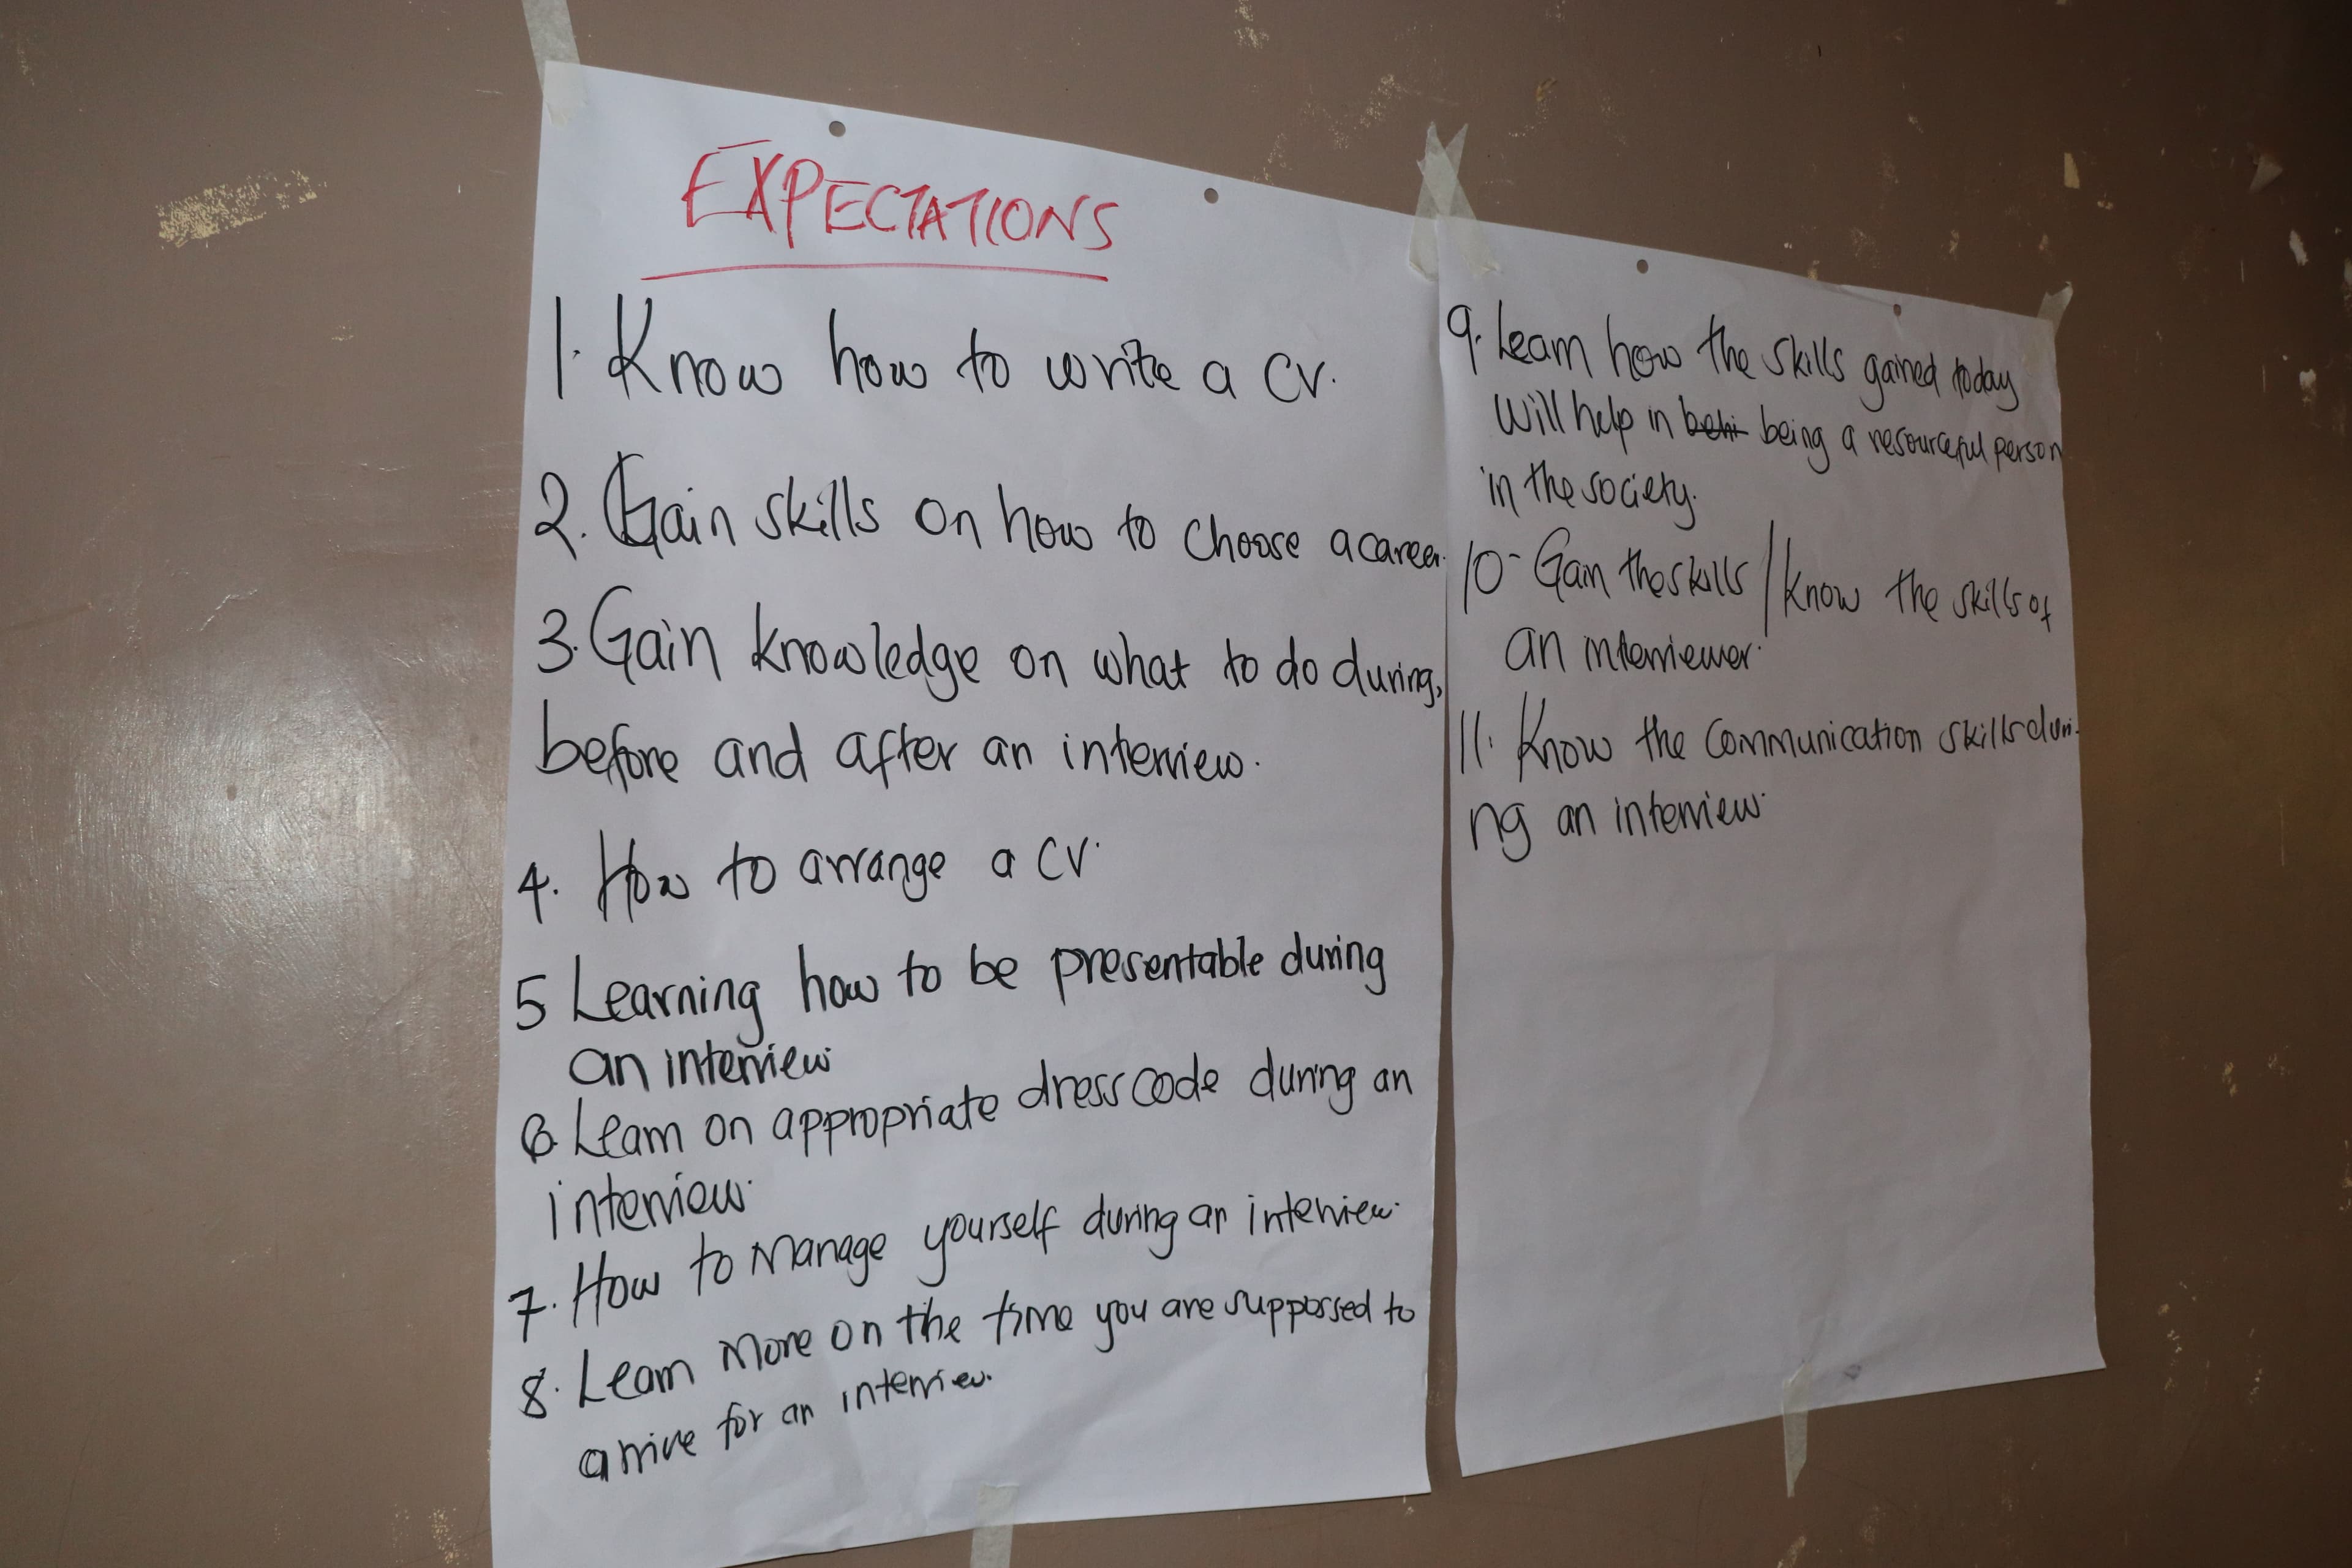 EXPECTATIONS
1. Know how to write a CV.
2. Gain skills on how to choose a career.
3. Gain knowledge on what to do during,
before and after an interview.
4. How to arrange a CV.
5 Learning how to be presentable during
an interview.
6. Learn on appropriate dress code during an
interview.
7. How to manage yourself during an interview.
8. Learn more on the time you are suppossed to
arrive for an interview.
9. Learn how the skills gained today
will help in being a resourceful person
in the society.
10- Gain the skills / know the skills of
an interviewer.
11. Know the communication skills duri-
ng an interview.